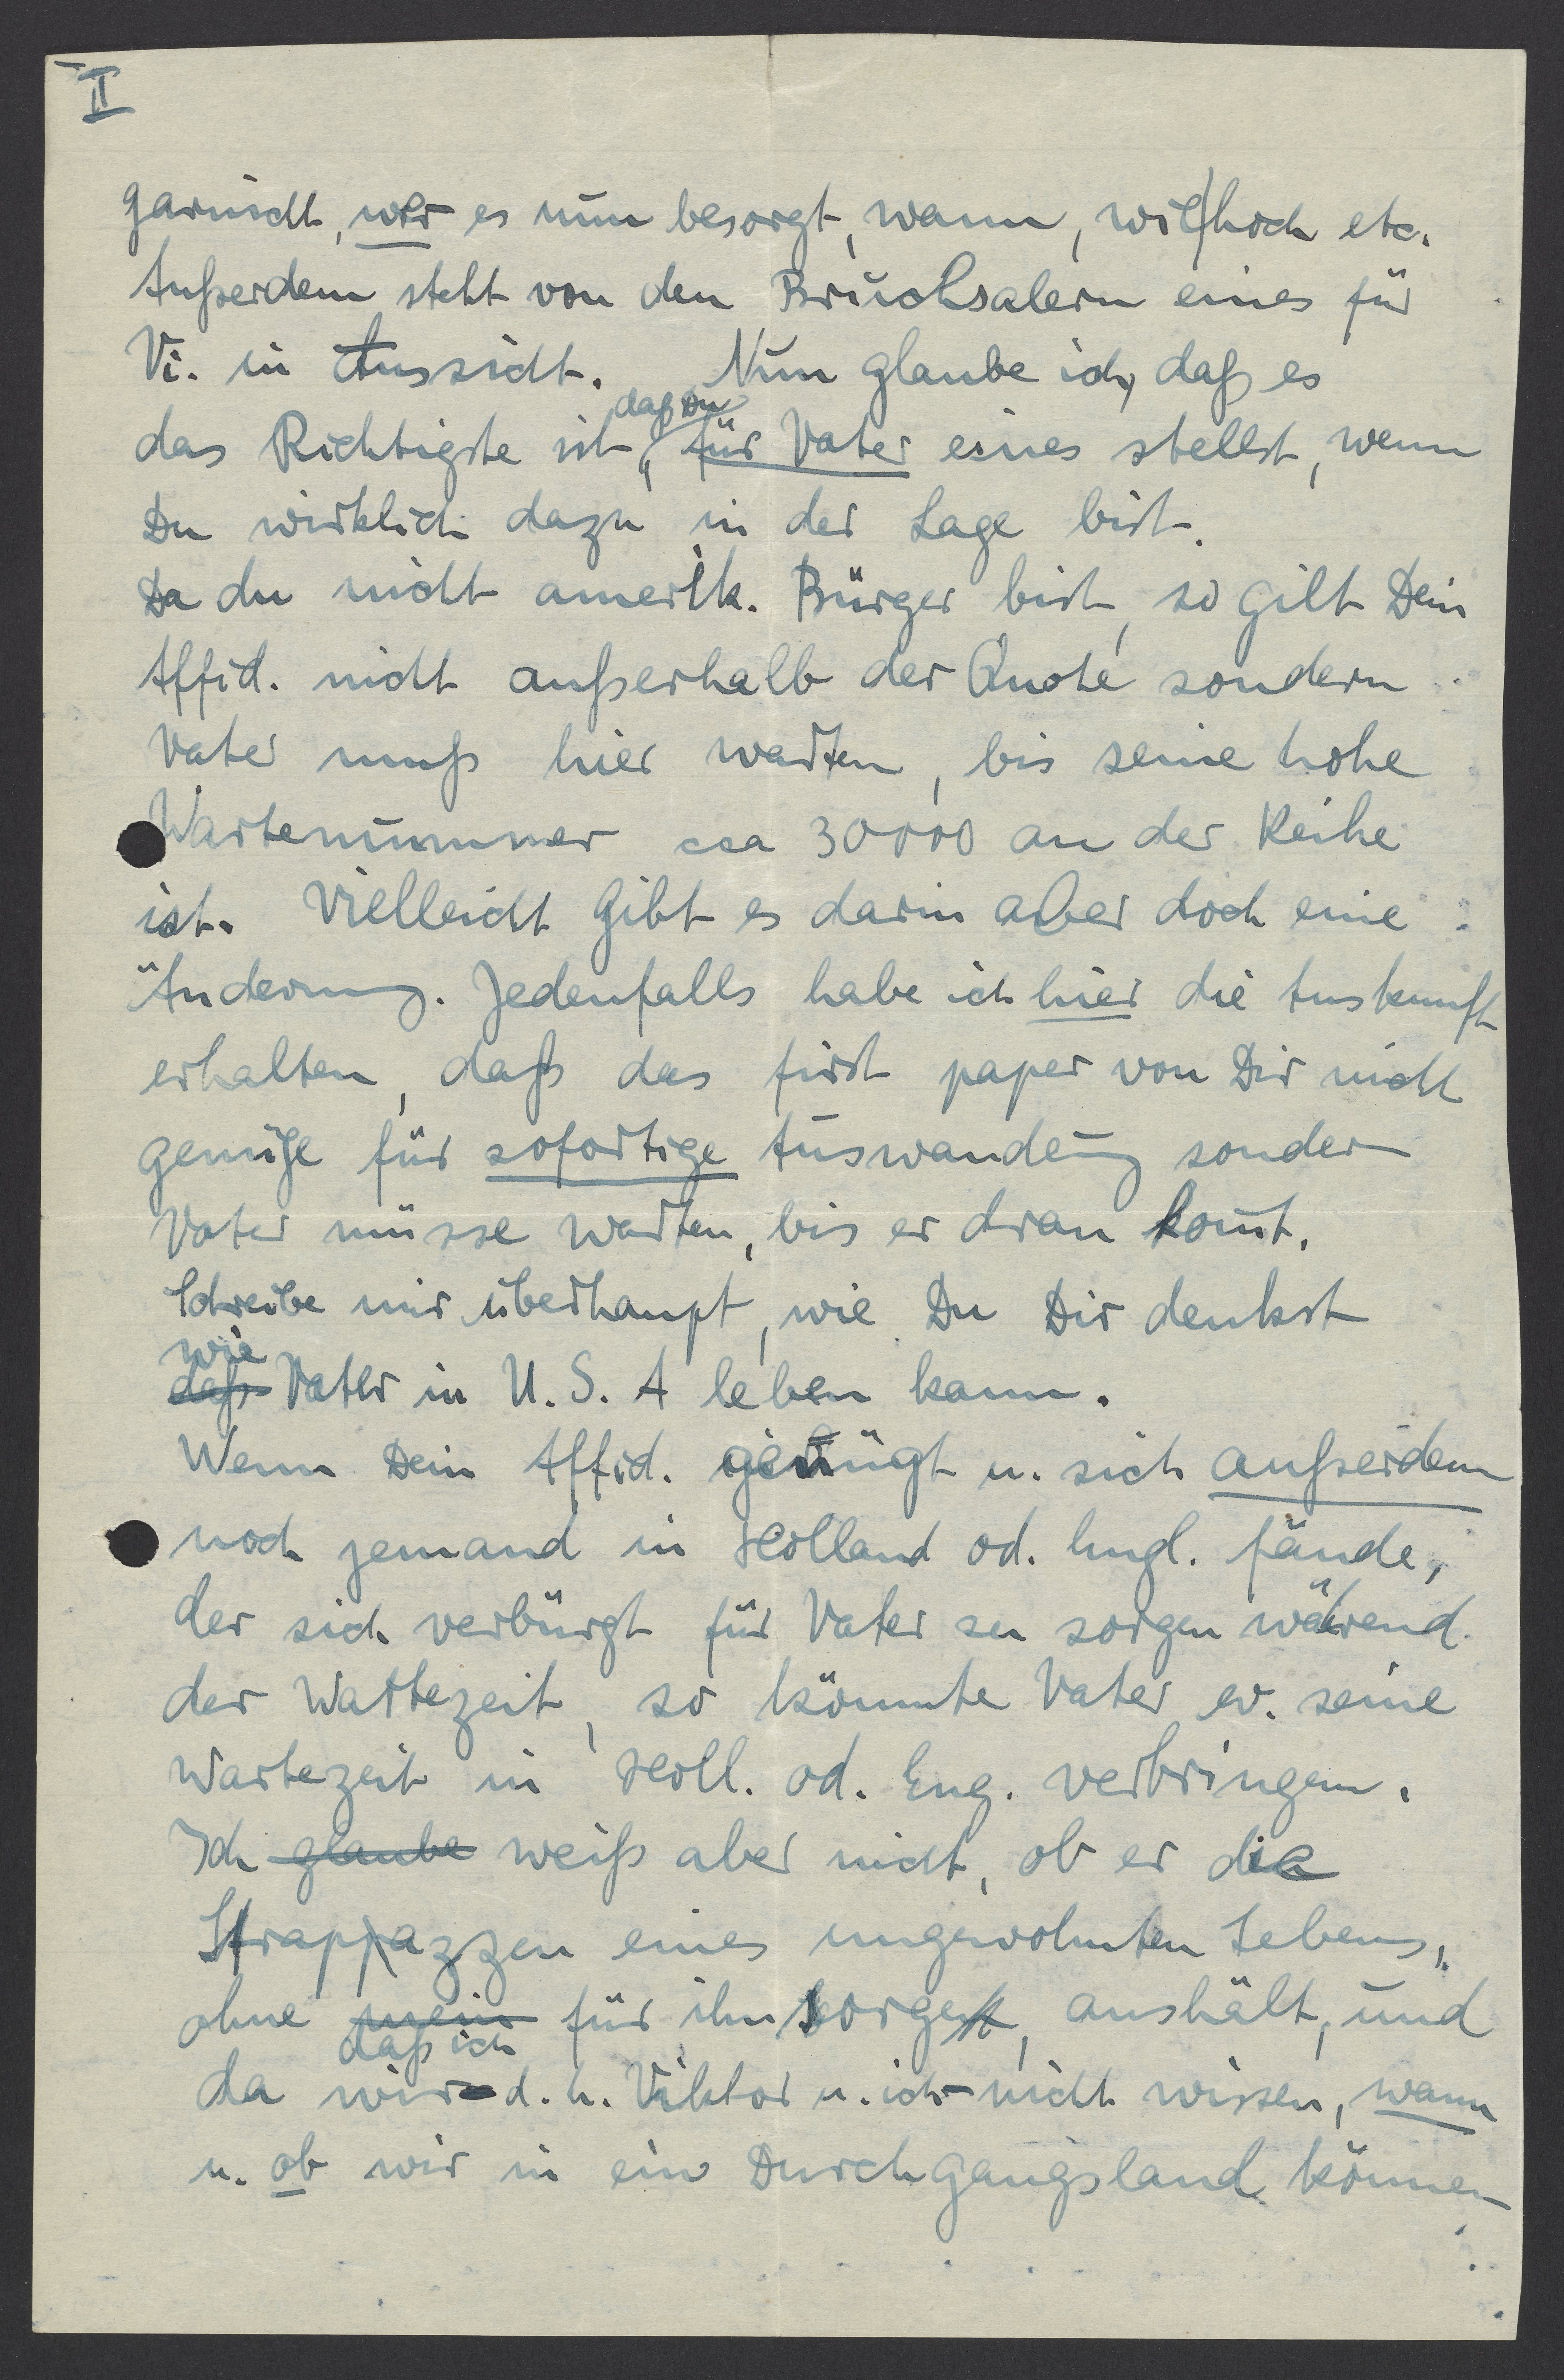 II
garnicht, wer es nun besorgt, wann, wie hoch etc.
Außerdem steht von den Bruchsalern eines für
Vi. in Aussicht. Nun glaube ich, daß es
das Richtigste ist, daß Du für Vater eines stellst, wenn
Du wirklich dazu in der Lage bist.
Da du nicht amerik. Bürger bist, so gilt Dein
Affid. nicht außerhalb der Quote sondern
Vater muß hier warten, bis seine hohe
Wartenummer cca 30000 an der Reihe
ist. Vielleicht gibt es darin aber doch eine
Änderung. Jedenfalls habe ich hier die Auskunft
erhalten, daß das first paper von Dir nicht
genüge für sofortige Auswanderung sondern
Vater müsse warten, bis er dran komt.
Schreibe mir überhaupt, wie Du Dir denkst
daß wie Vater in U.S.A leben kann.
Wenn Dein Affid. genügt u. sich außerdem
noch jemand in Holland od. Engl. fände,
der sich verbürgt für Vater zu sorgen während
der Wartezeit, so könnte Vater ev. seine
Wartezeit in Holl. od. Eng. verbringen.
Ich glaube weiß aber nicht, ob er die
Strappazzen eines ungewohnten Lebens,
ohne mein daß ich für ihn sorge, aushält, und
da wir - d.h. Viktor u. ich - nicht wissen, wann
u. ob wir in ein Durchgangsland können